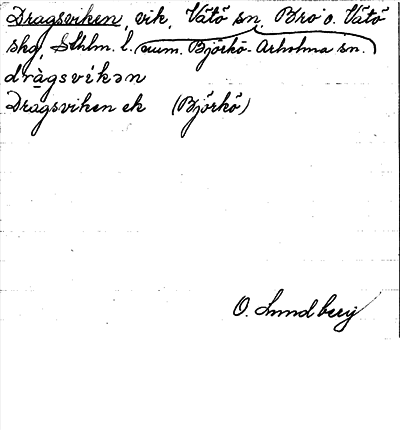 Dragsviken, vik, Vätö sn, Bro o. Vätö
skg, Sthlm. l. (num. Björkö-Arholma sn.)
dràgsvíkən
Dragsviken ek (Björkö)
O. Lundberg